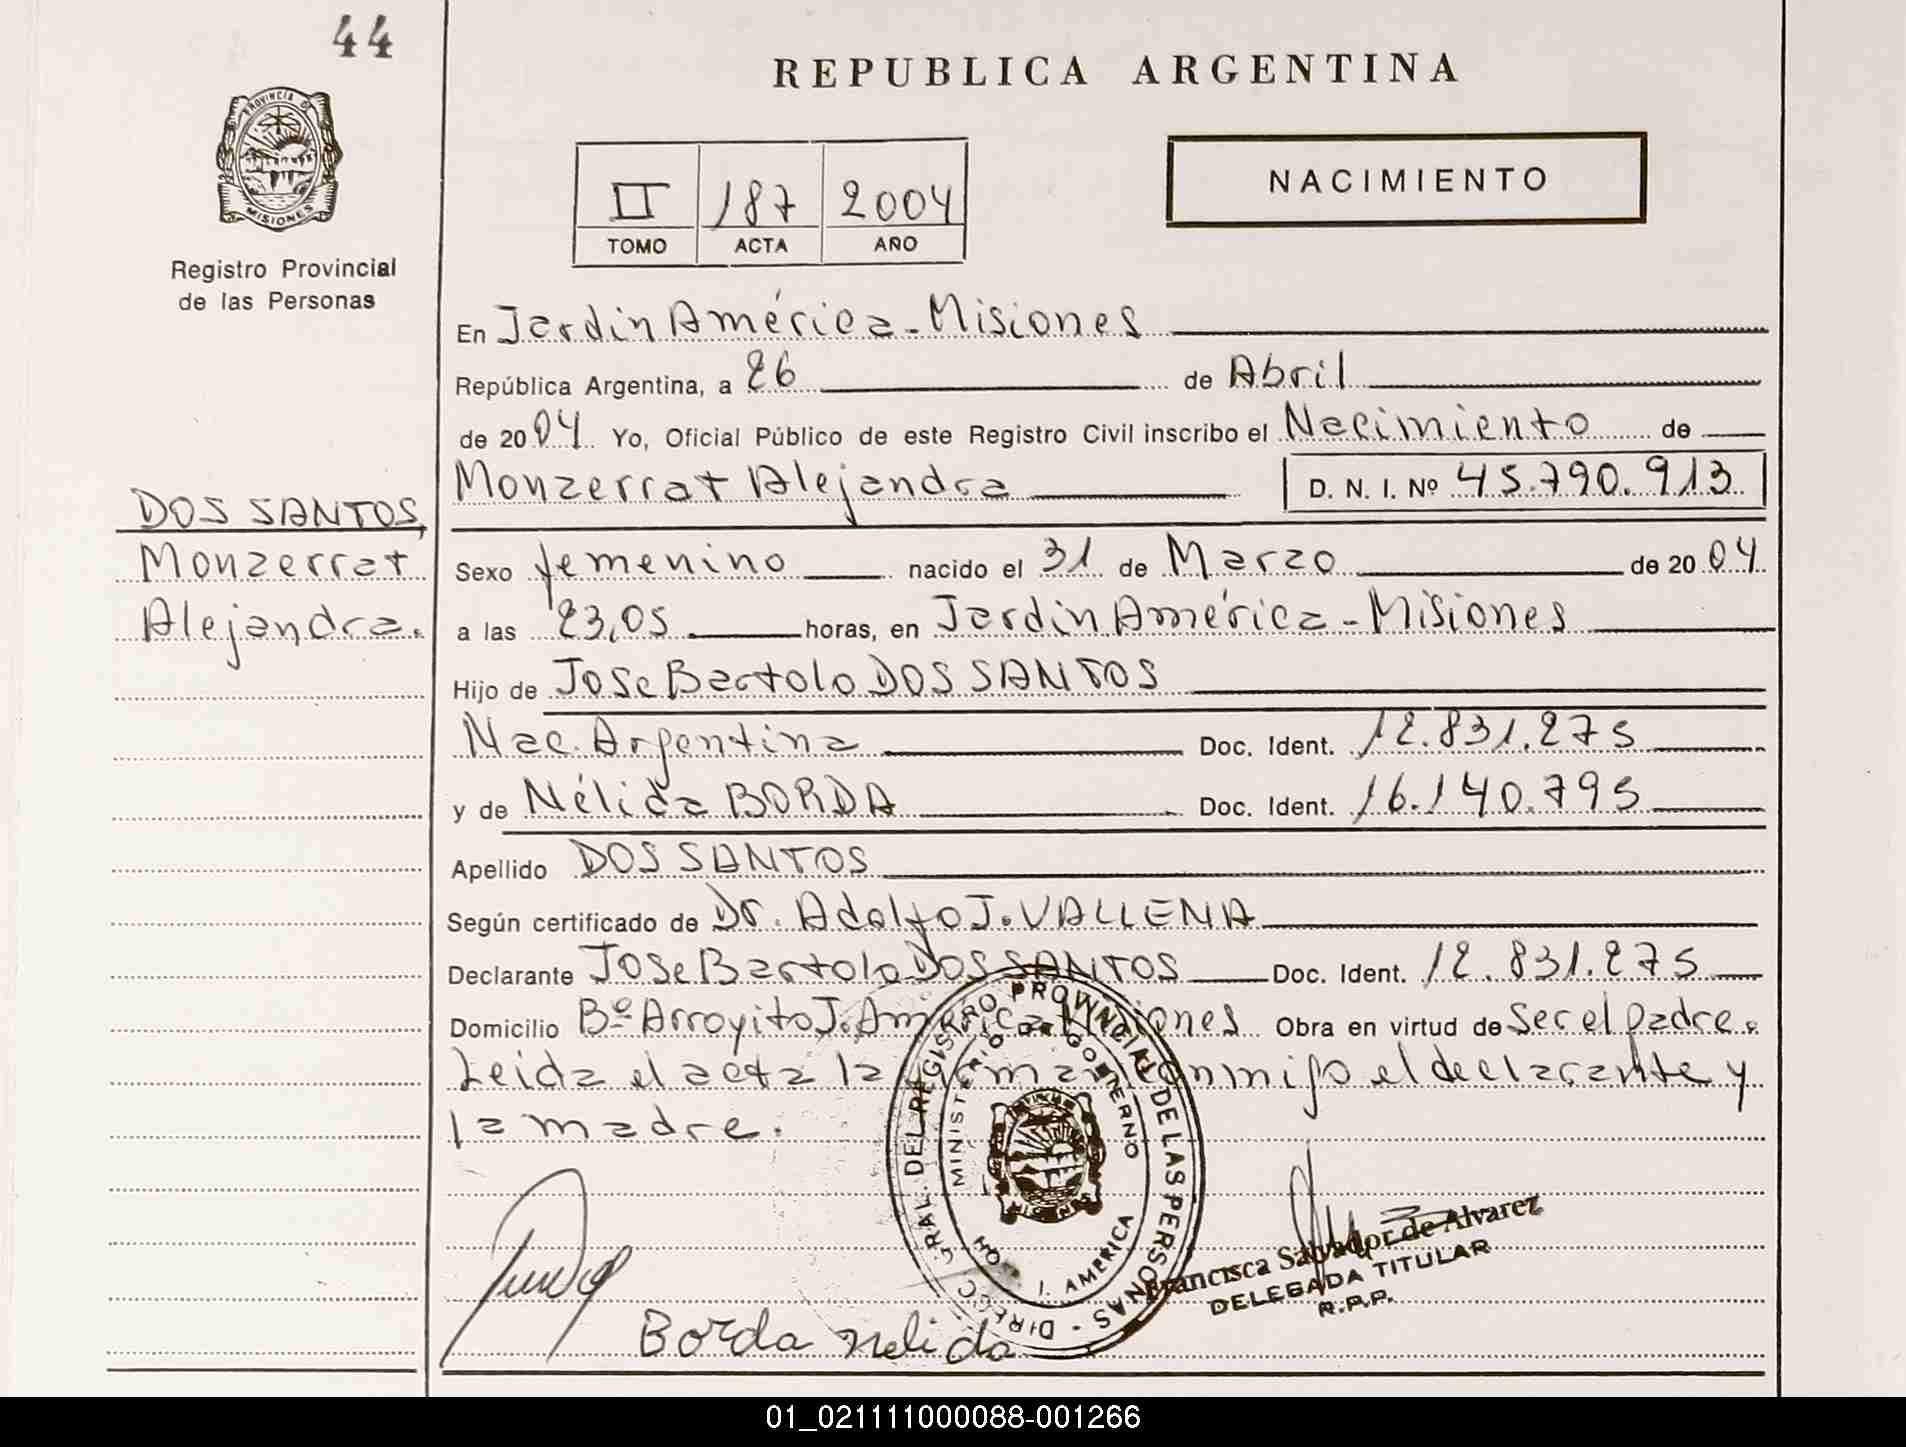 44
PROVINCIA DE
MISIONES
Registro Provincial
de las Personas
REPUBLICA ARGENTINA
NACIMIENTO
II 187 2004
TOMO ACTA AÑO
En Jardin América - Misiones
República Argentina, a 26 de Abril
de 2004 Yo, Oficial Público de este Registro Civil inscribo el Nacimiento de
Monzerrat Alejandra D. N. I. Nº 45.790.913
DOS SANTOS,
Monzerrat
Alejandra.
Sexo femenino nacido el 31 de Marzo de 2004
a las 23,05 horas, en Jardin América - Misiones
Hijo de Jose Bartolo DOS SANTOS
Nac. Argentina Doc. Ident. 12.831.275
y de Nélida BORDA Doc. Ident. 16.140.795
Apellido DOS SANTOS
Según certificado de Dr. Adolfo J. VALLENA
Declarante Jose Bartolo DOS SANTOS Doc. Ident. 12.831.275
Domicilio Bº Arroyito J. América Misiones Obra en virtud de Ser el padre.
Leida el acta la firman conmigo el declarante y
la madre.
DIRECC. GRAL. DEL REGISTRO PROVINCIAL DE LAS PERSONAS -
MINISTERIO DE GOBIERNO
J. AMERICA
Francisca Salvador de Alvarez
DELEGADA TITULAR
R.P.P.
Borda nelida
01_021111000088-001266